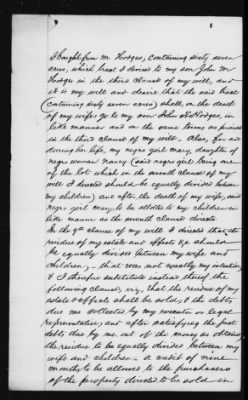 I bought from M Hodges, containing sixty seven
acres, which tract I devised to my son John M
Hodges in the third clause of my will, and
it is my will and desire that the said tract
(containing sixty seven acres) shall, on the death
of my wife, go to my son John M Hodges, in
like manner and on the same terms as provided
in the third clause of my will. Also, for and
during her life, my negro girl mary, daughter of
negro woman nancy (said negro girl being one
of the lot which in the seventh clause of my
will I directed should be equally divided between
my children) and after the death of my wife, said
negro girl mary to be allotted to my children in
like manner as the seventh clause directs.
In the 9th clause of my will I directed that the
residue of my estate and effects &c should
be equally divided between my wife and
children, - that was not exactly my intention,
& I therefore substitute instead thereof the
following clause, viz, that the residue of my
estate & effects shall be sold, & the debts
due me collected by my executor or legal
representative, and after satisfying the just
debts due by me out of the money so obtained
the residue to be equally divided between my
wife and children - a credit of nine
months to be allowed to the purchasers
of the property directed to be sold in